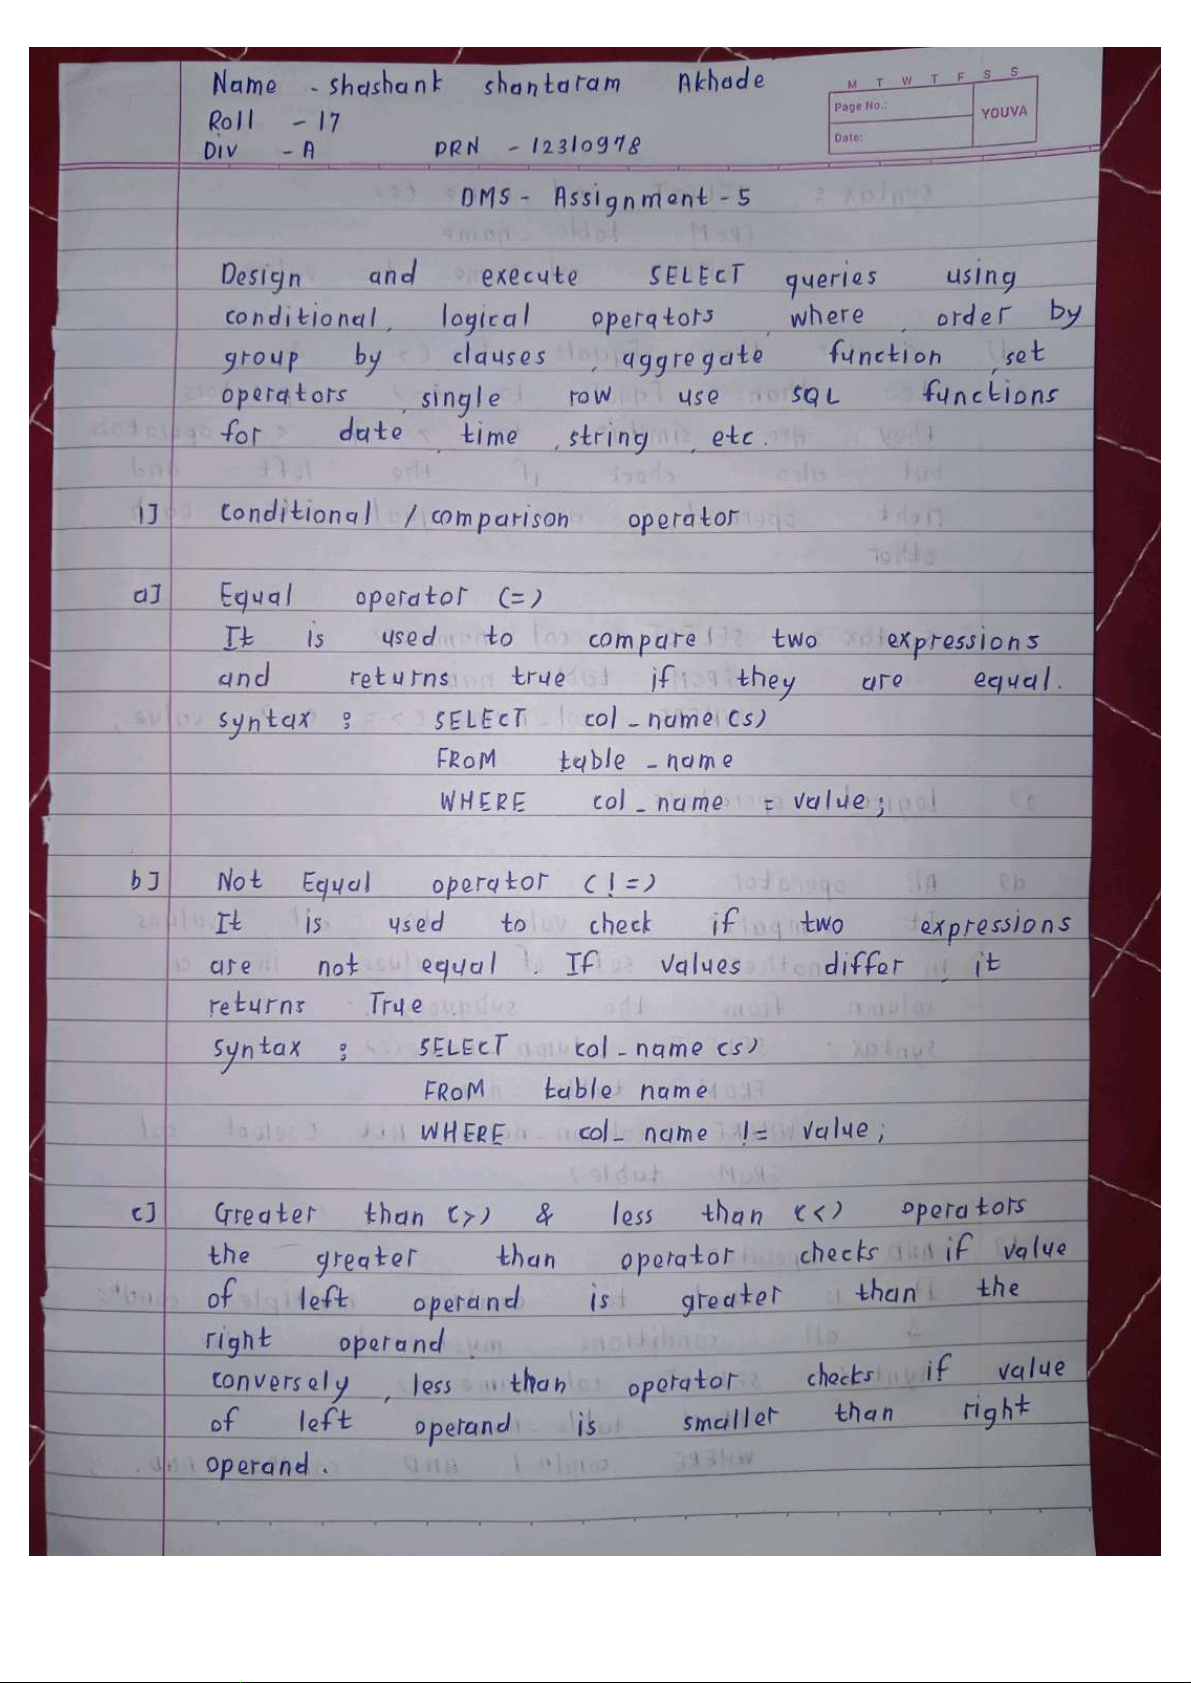 Name - Shashank Shantaram Akhade
M T W T F S S
Page No.:
YOUVA
Date:
Roll - 17
Div - A PRN - 12310978
DMS - Assignment - 5
Design and execute SELECT queries using
conditional, logical operators, where, order by
group by clauses, aggregate function, set
operators, single row use SQL functions
for date, time, string, etc.
1] Conditional / comparison operator
a] Equal operator (=)
It is used to compare two expressions
and returns true if they are equal.
syntax : SELECT col_name(s)
FROM table_name
WHERE col_name = value;
b] Not Equal operator (!=)
It is used to check if two expressions
are not equal. If values differ, it
returns True
syntax : SELECT col_name(s)
FROM table name
WHERE col_name != value;
c] Greater than (>) & less than (<) operators
the greater than operator checks if value
of left operand is greater than the
right operand.
conversely, less than operator checks if value
of left operand is smaller than right
operand.